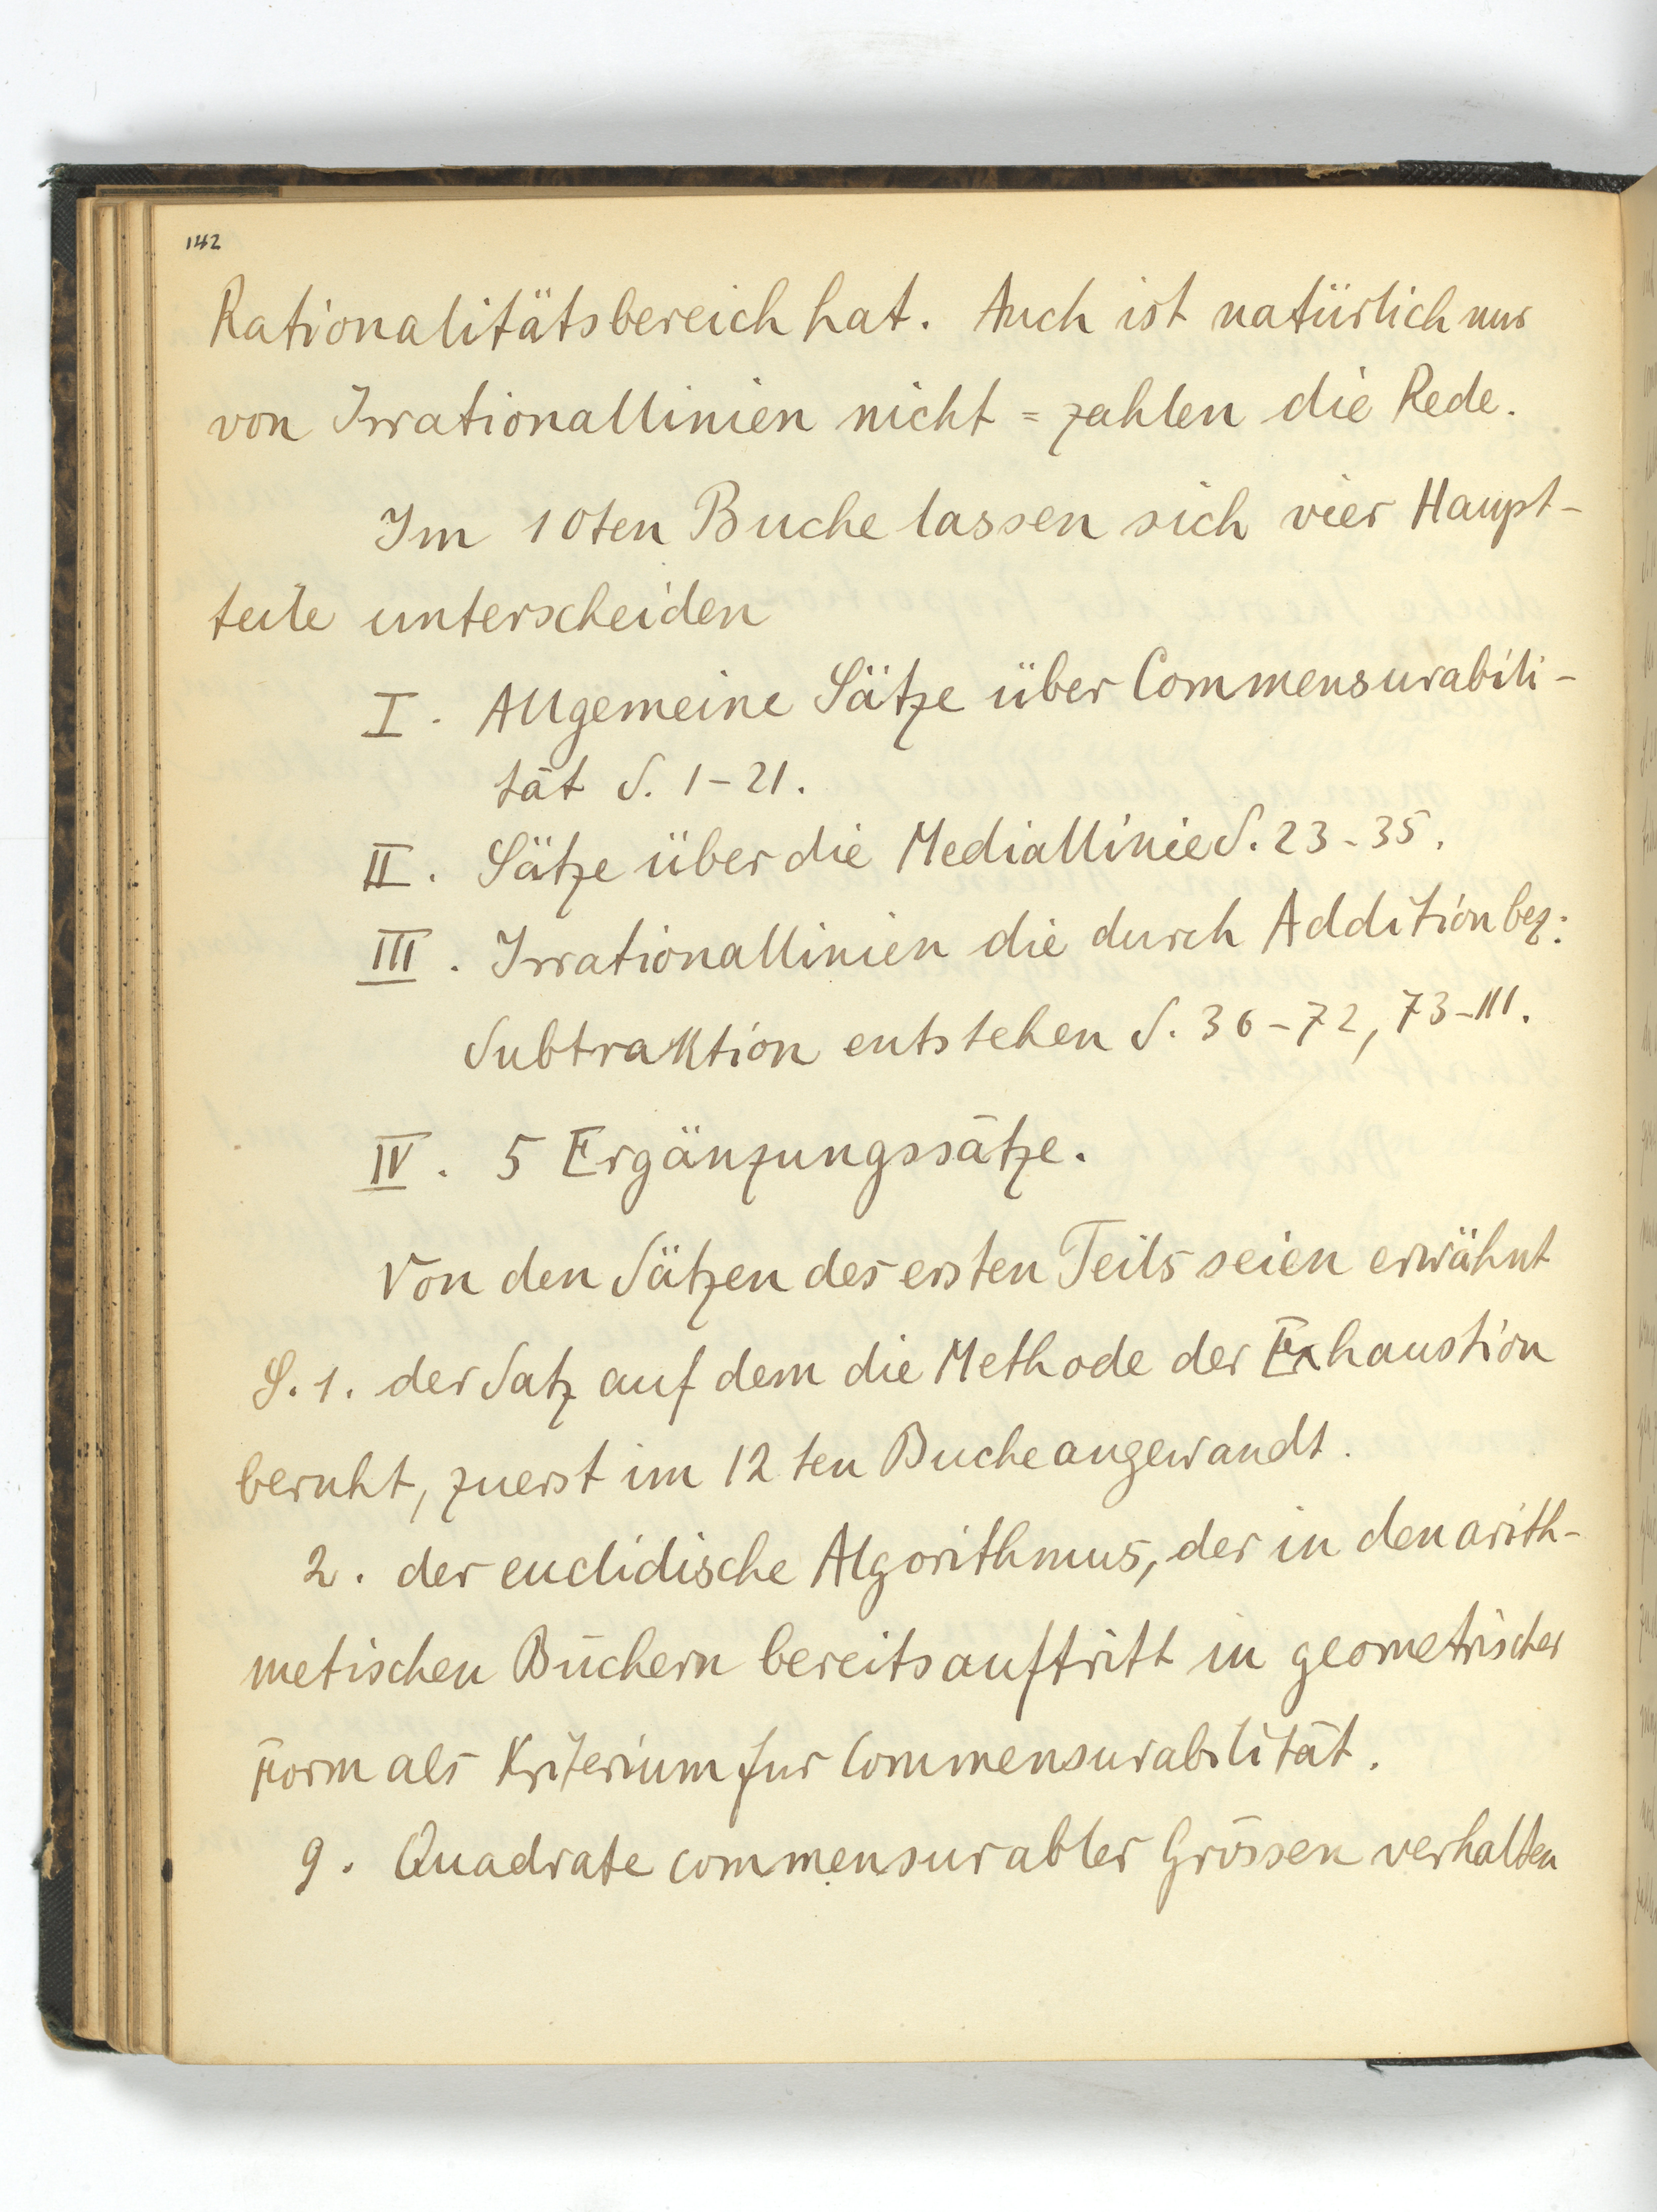 142
Rationalitätsbereich hat. Auch ist natürlich nur
von Irrationallinien nicht = zahlen die Rede.
Im 10ten Buche lassen sich vier Haupt-
teile unterscheiden
I. Allgemeine Sätze über Commensurabili-
tät S. 1-21.
II. Sätze über die Mediallinie S. 23-35.
III. Irrationallinien die durch Addition bez.
Subtraktion entstehen S. 36-72, 73-111.
IV. 5 Ergänzungssätze.
Von den Sätzen des ersten Teils seien erwähnt
S. 1. der Satz auf dem die Methode der Exhaustion
beruht, zuerst im 12ten Buche angewandt.
2. der euclidische Algorithmus, der in den arith-
metischen Büchern bereits auftritt in geometrischer
Form als Kriterium fur Commensurabilität.
9. Quadrate commensurabler Grössen verhalten